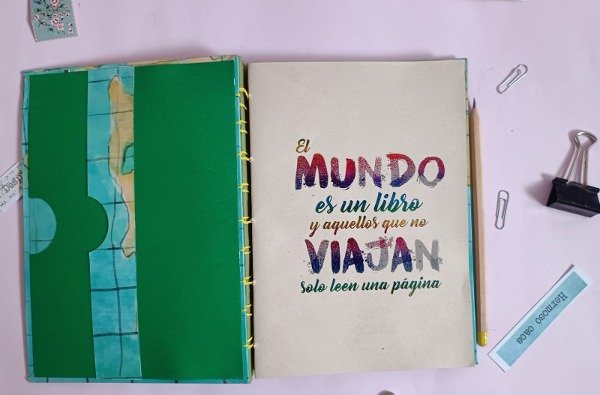 El
MUNDO
es un libro
y aquellos que no
VIAJAN
solo leen una página
Hermoso caos